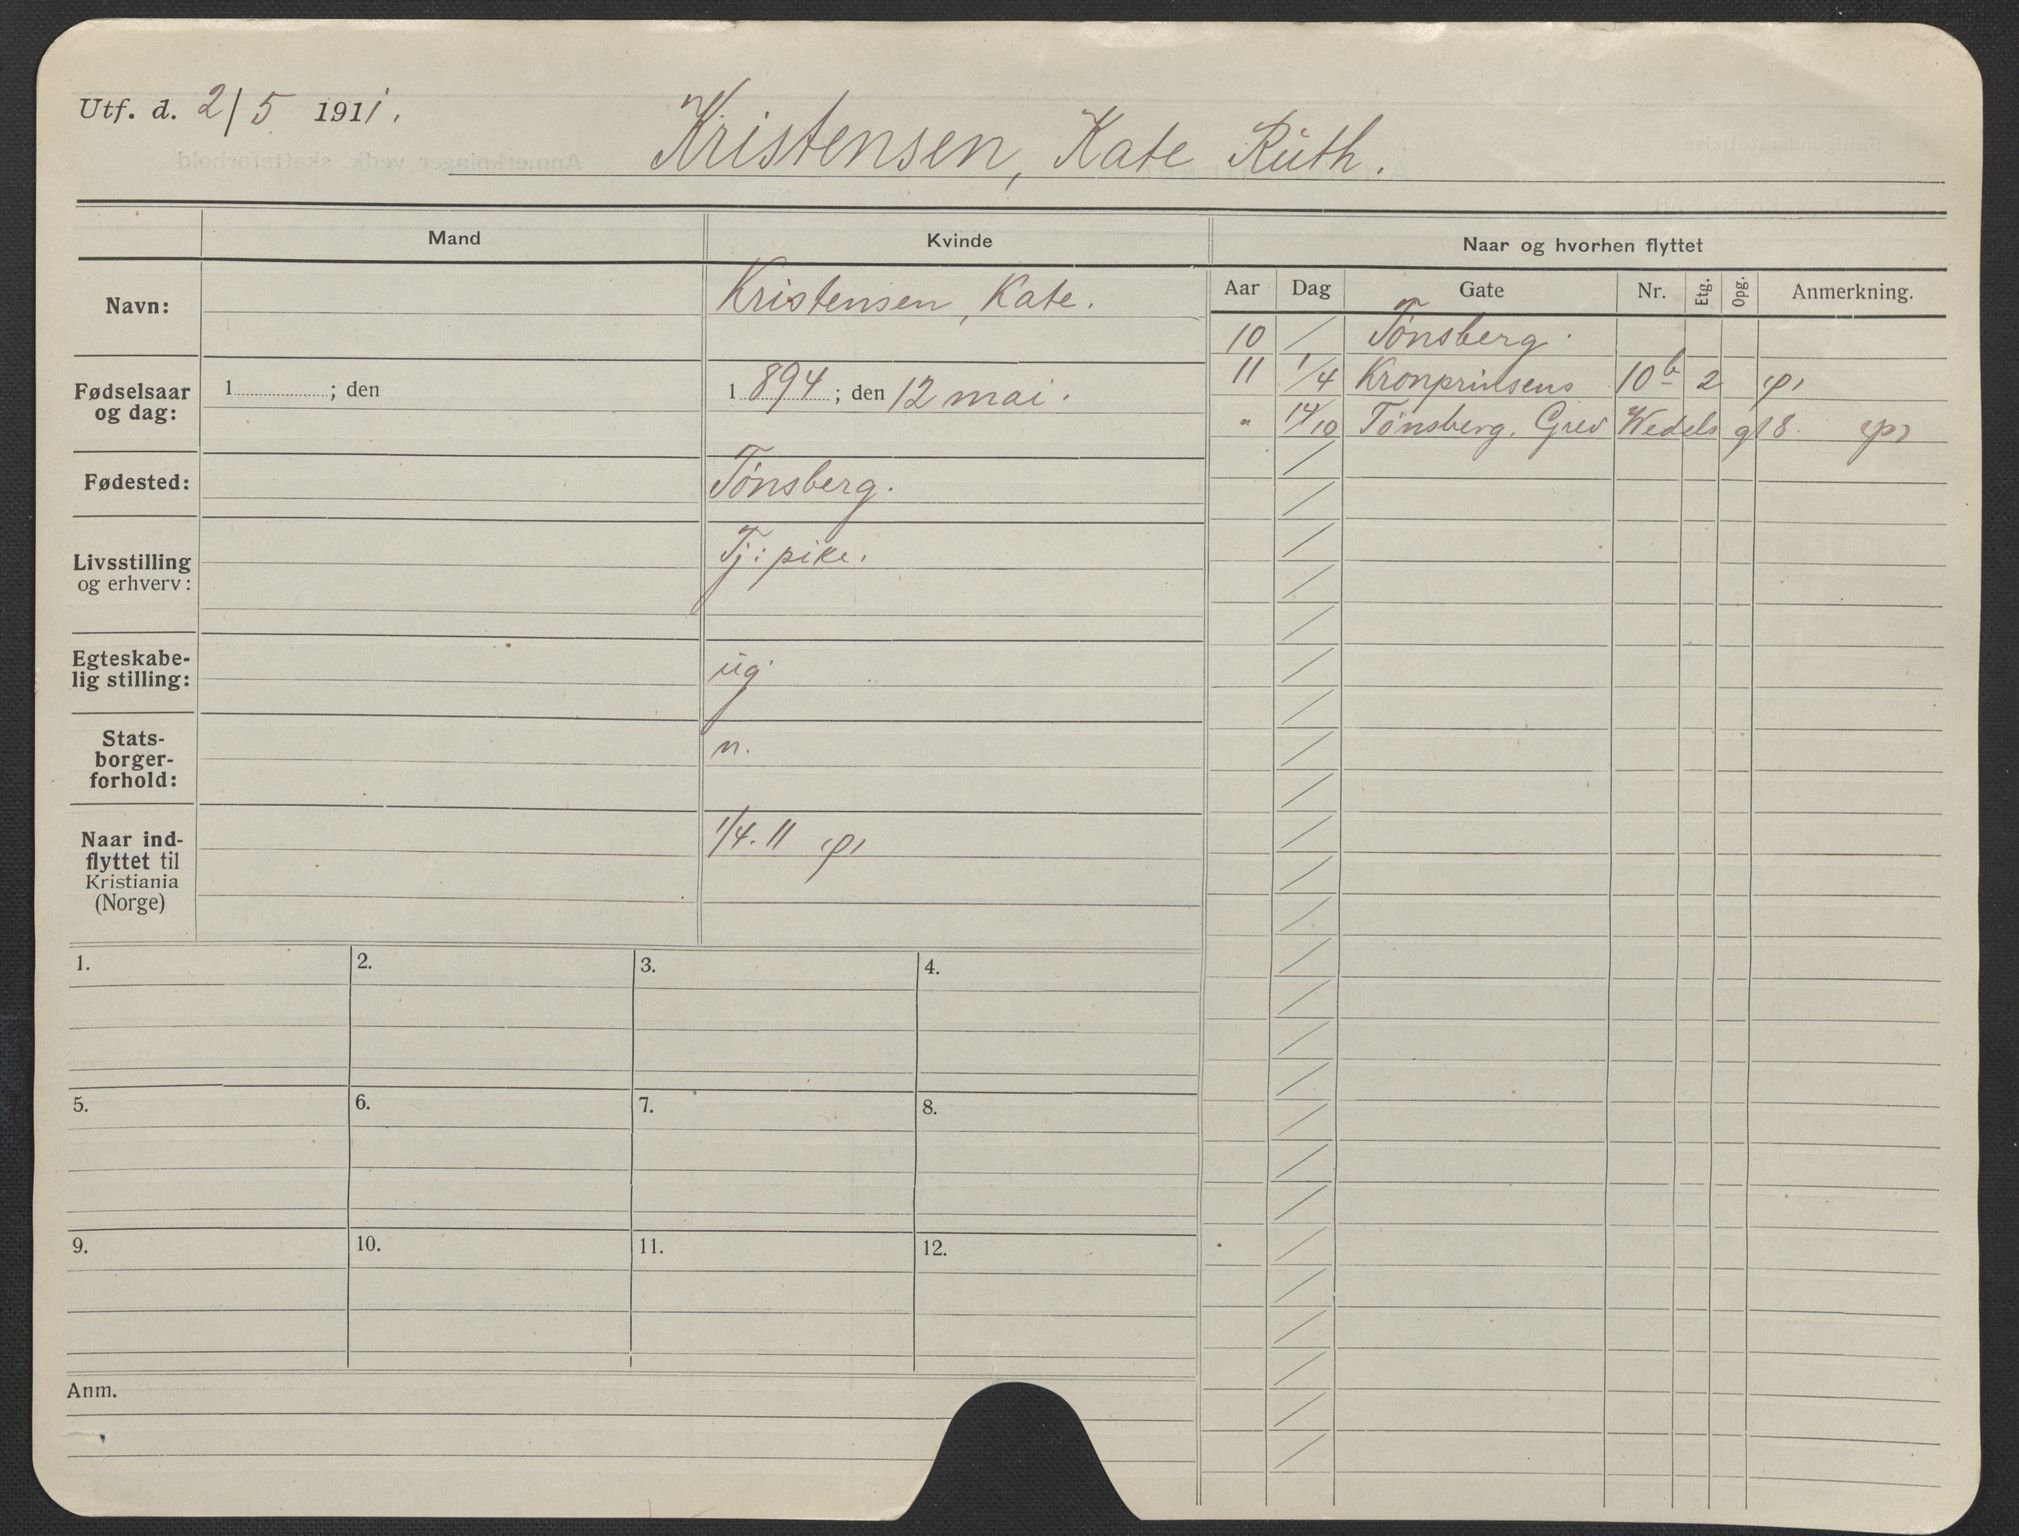 Utf. d. 2/5 1911.
Kristensen, Kate Ruth.
Mand Kvinde Naar og hvorhen flyttet
Navn: Kristensen, Kate.
Fødselsaar og dag: 1 ; den 1 894 ; den 12 mai.
Fødested: Tønsberg.
Livsstilling og erhverv: Tj: pike.
Egteskabe-
lig stilling: ug
Stats-
borger-
forhold: n.
Naar ind-
flyttet til
Kristiania
(Norge) 1/4. 11
Aar Dag Gate Nr. Etg. Opg. Anmerkning.
10 / Tønsberg.
11 1/4 Kronprinsens 10b 2
" 14/10 Tønsberg. Grev Wedels g 18.
1. 2. 3. 4.
5. 6. 7. 8.
9. 10. 11. 12.
Anm.
Anmerkninger vedk. skatteforhold